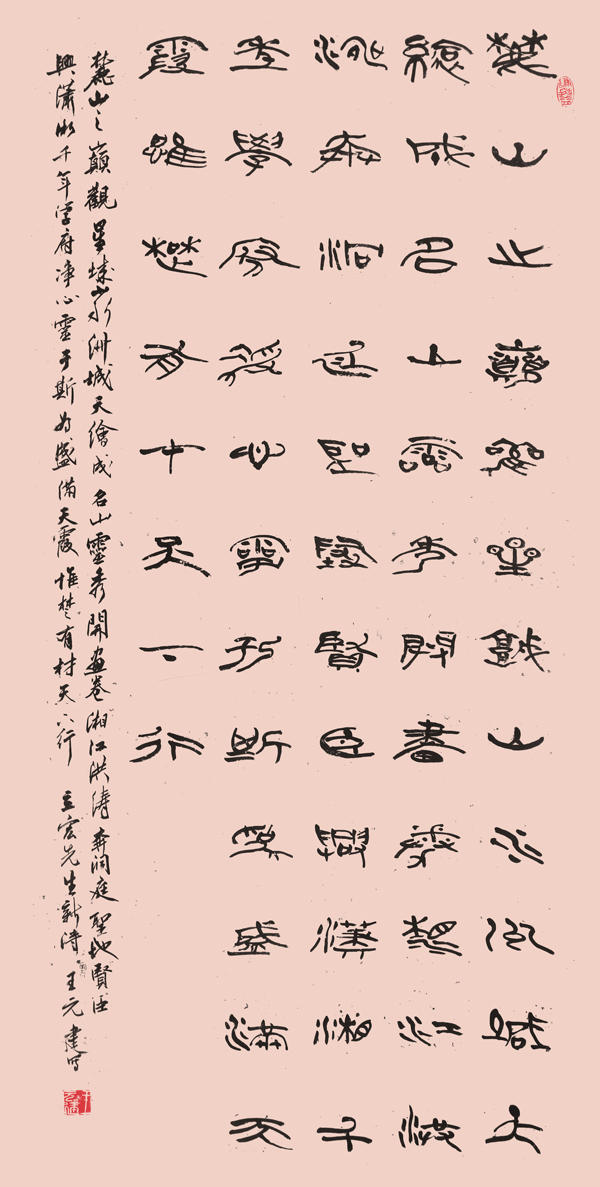 麓山之巔觀星城山水洲城天
繪成名山靈秀開畫卷湘江洪
濤奔洞庭聖地賢臣興瀟湘千
年學府淨心靈于斯為盛滿天
霞惟楚有才天下行
麓山之巔觀星城山水洲城天繪成名山靈秀開畫卷湘江洪濤奔洞庭聖地賢臣
興瀟湘千年學府净心靈于斯為盛滿天霞惟楚有材天下行 立宏先生新詩 王元建写